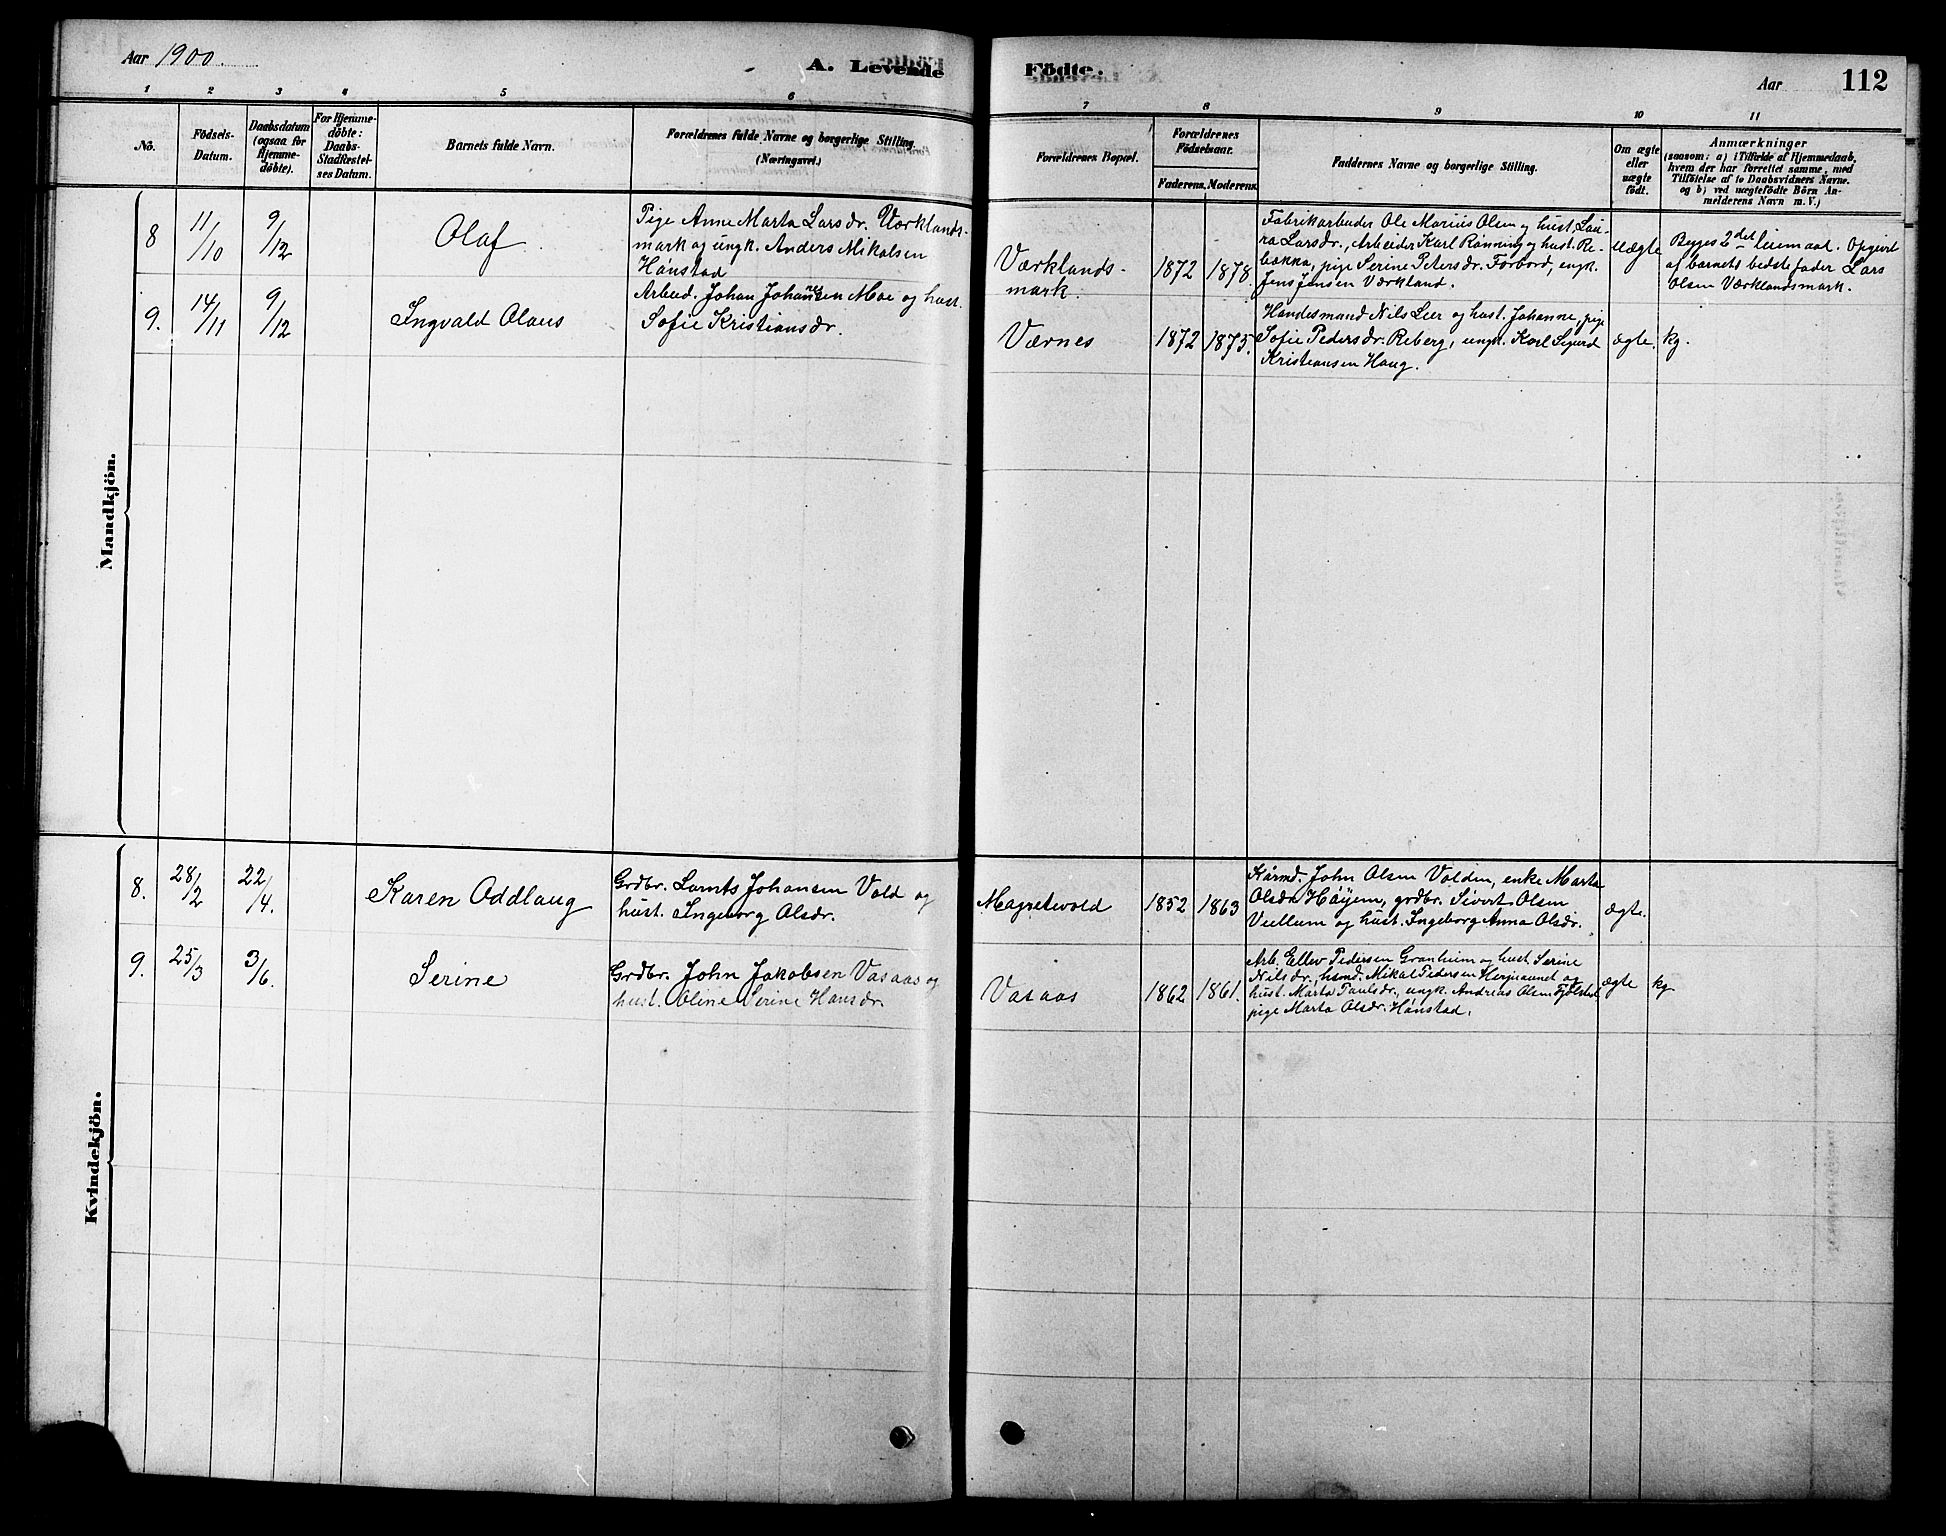 Aar 1900.
A. Levende
Födte.
Aar
112
1 2 3 4 5 6
7 8 9 10 11
No.
Födsels-
Datum.
Daabsdatum
(ogsaa for
Hjemme-
döbte).
For Hjemme-
döbte:
Daabs-
Stadfæstel-
ses Datum.
Barnets fulde Navn.
Forældrenes fulde Navne og borgerlige Stilling.
(Næringsvei.)
Forældrenes Bopæl.
Forældrenes
Födselsaar.
Faderens. Moderens.
Faddernes Navne og borgerlige Stilling.
Om ægte
eller
uægte
födt.
Anmærkninger
(saasom: a) i Tilfælde af Hjemmedaab,
hvem der har forrettet samme, med
Tilföielse af to Daabsvidners Navne.
og b) ved uægtefödte Börn An-
melderens Navn m. V.)
Mandkjön.
8 11/10 9/12
Olaf
Pige Anne Marta Larsdr. Værklands-
mark og ungk. Anders Mikalsen
Hönstad
Værklands-
mark.
1872 1878.
Fabrikarbeider Ole Marius Olsen og hust. Lau-
ra Larsdr., Arbeider Karl Rønning og hust. Re-
bekka, pige Serine Petersdr. Forbord, ungk.
Jens Jensen Værkland.
uægte
Begges 2det leiermaal. Opgivet
af barnets bedstefader Lars
Olsen Værklandsmark.
9. 14/11 9/12
Ingvald Olaus
Arbeid. Johan Johannesen Moe og hust.
Sofie Kristiansdr.
Værnes
1872 1875.
Handesmand Nils Leer og hust. Johanne, pige
Sofie Pedersdr. Reberg, ungk. Karl Sigurd
Kristiansen Haug.
ægte.
kg.
Kvindekjön.
8. 28/2 22/4.
Karen Oddlaug
Grdbr. Lornts Johansen Vold og
hust. Ingeborg Olsdr.
Magretevold
1852 1863
Kårmd. John Olsen Volden, enke Marta
Olsdr. Höyem, grdbr. Sivert Olsen
Vullum og hust. Ingeborg Anna Olsdr.
ægte.
9. 25/3 3/6.
Serine
Grdbr. John Jakobsen Vasaas og
hust. Oline Serine Hansdr.
Vasaas
1862 1861.
Arb. Ellev Pedersen Granheim og hust. Serine
Nilsdr., hsmd. Mikal Pedersen Hernesund og
hust. Marta Paulsdr., ungk. Andreas Olsen Fjølstad
pige Marta Olsdr. Hönstad.
ægte
kg